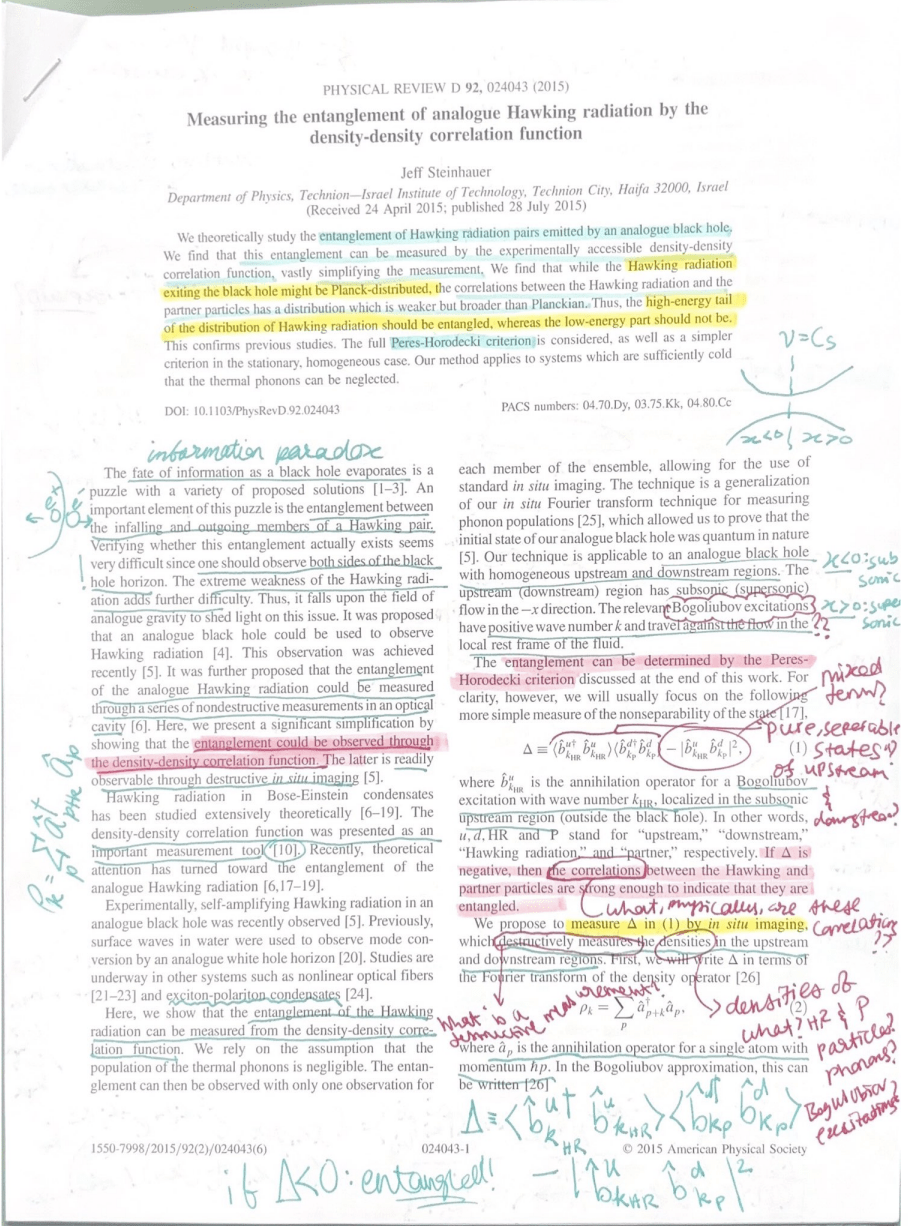 PHYSICAL REVIEW D 92, 024043 (2015)
Measuring the entanglement of analogue Hawking radiation by the
density-density correlation function
Jeff Steinhauer
Department of Physics, Technion—Israel Institute of Technology, Technion City, Haifa 32000, Israel
(Received 24 April 2015; published 28 July 2015)
We theoretically study the entanglement of Hawking radiation pairs emitted by an analogue black hole.
We find that this entanglement can be measured by the experimentally accessible density-density
correlation function, vastly simplifying the measurement. We find that while the Hawking radiation
exiting the black hole might be Planck-distributed, the correlations between the Hawking radiation and the
partner particles has a distribution which is weaker but broader than Planckian. Thus, the high-energy tail
of the distribution of Hawking radiation should be entangled, whereas the low-energy part should not be.
This confirms previous studies. The full Peres-Horodecki criterion is considered, as well as a simpler
criterion in the stationary, homogeneous case. Our method applies to systems which are sufficiently cold
that the thermal phonons can be neglected.
v=Cs
x<0 | x>0
DOI: 10.1103/PhysRevD.92.024043
PACS numbers: 04.70.Dy, 03.75.Kk, 04.80.Cc
information paradox
The fate of information as a black hole evaporates is a
puzzle with a variety of proposed solutions [1–3]. An
important element of this puzzle is the entanglement between
the infalling and outgoing members of a Hawking pair.
Verifying whether this entanglement actually exists seems
very difficult since one should observe both sides of the black
hole horizon. The extreme weakness of the Hawking radi-
ation adds further difficulty. Thus, it falls upon the field of
analogue gravity to shed light on this issue. It was proposed
that an analogue black hole could be used to observe
Hawking radiation [4]. This observation was achieved
recently [5]. It was further proposed that the entanglement
of the analogue Hawking radiation could be measured
through a series of nondestructive measurements in an optical
cavity [6]. Here, we present a significant simplification by
showing that the entanglement could be observed through
the density-density correlation function. The latter is readily
observable through destructive in situ imaging [5].
Hawking radiation in Bose-Einstein condensates
has been studied extensively theoretically [6–19]. The
density-density correlation function was presented as an
important measurement tool [10]. Recently, theoretical
attention has turned toward the entanglement of the
analogue Hawking radiation [6,17–19].
Experimentally, self-amplifying Hawking radiation in an
analogue black hole was recently observed [5]. Previously,
surface waves in water were used to observe mode con-
version by an analogue white hole horizon [20]. Studies are
underway in other systems such as nonlinear optical fibers
[21–23] and exciton-polariton condensates [24].
Here, we show that the entanglement of the Hawking
radiation can be measured from the density-density corre-
lation function. We rely on the assumption that the
population of the thermal phonons is negligible. The entan-
glement can then be observed with only one observation for
each member of the ensemble, allowing for the use of
standard in situ imaging. The technique is a generalization
of our in situ Fourier transform technique for measuring
phonon populations [25], which allowed us to prove that the
initial state of our analogue black hole was quantum in nature
[5]. Our technique is applicable to an analogue black hole
with homogeneous upstream and downstream regions. The
upstream (downstream) region has subsonic (supersonic)
flow in the −x direction. The relevant Bogoliubov excitations
have positive wave number k and travel against the flow in the
local rest frame of the fluid.
x<0: sub
sonic
x>0: super
sonic
??
The entanglement can be determined by the Peres-
Horodecki criterion discussed at the end of this work. For
clarity, however, we will usually focus on the following
more simple measure of the nonseparability of the state [17],
mixed
term?
Δ ≡ ⟨b̂^{u†}_{k_HR} b̂^u_{k_HR}⟩⟨b̂^{d†}_{k_P} b̂^d_{k_P}⟩ − |⟨b̂^u_{k_HR} b̂^d_{k_P}⟩|², (1)
pure, separable
states
of upstream
&
downstream?
where b̂^u_{k_HR} is the annihilation operator for a Bogoliubov
excitation with wave number k_HR, localized in the subsonic
upstream region (outside the black hole). In other words,
u, d, HR and P stand for “upstream,” “downstream,”
“Hawking radiation,” and “partner,” respectively. If Δ is
negative, then the correlations between the Hawking and
partner particles are strong enough to indicate that they are
entangled.
what, physically, are these
correlations
??
We propose to measure Δ in (1) by in situ imaging,
which destructively measures the densities in the upstream
and downstream regions. First, we will write Δ in terms of
the Fourier transform of the density operator [26]
What is a
destructive measurement?
ρ_k = ∑_p â†_{p+k} â_p, (2)
densities of
what? HR & P
particles?
phonons?
Bogulubiov
excitations
where â_p is the annihilation operator for a single atom with
momentum ħp. In the Bogoliubov approximation, this can
be written [26]
Δ ≡ ⟨b̂^{u†}_{k_HR} b̂^u_{k_HR}⟩⟨b̂^{d†}_{k_P} b̂^d_{k_P}⟩
− |b̂^u_{k_HR} b̂^d_{k_P}|²
if Δ<0: entangled!
1550-7998/2015/92(2)/024043(6)
024043-1
© 2015 American Physical Society